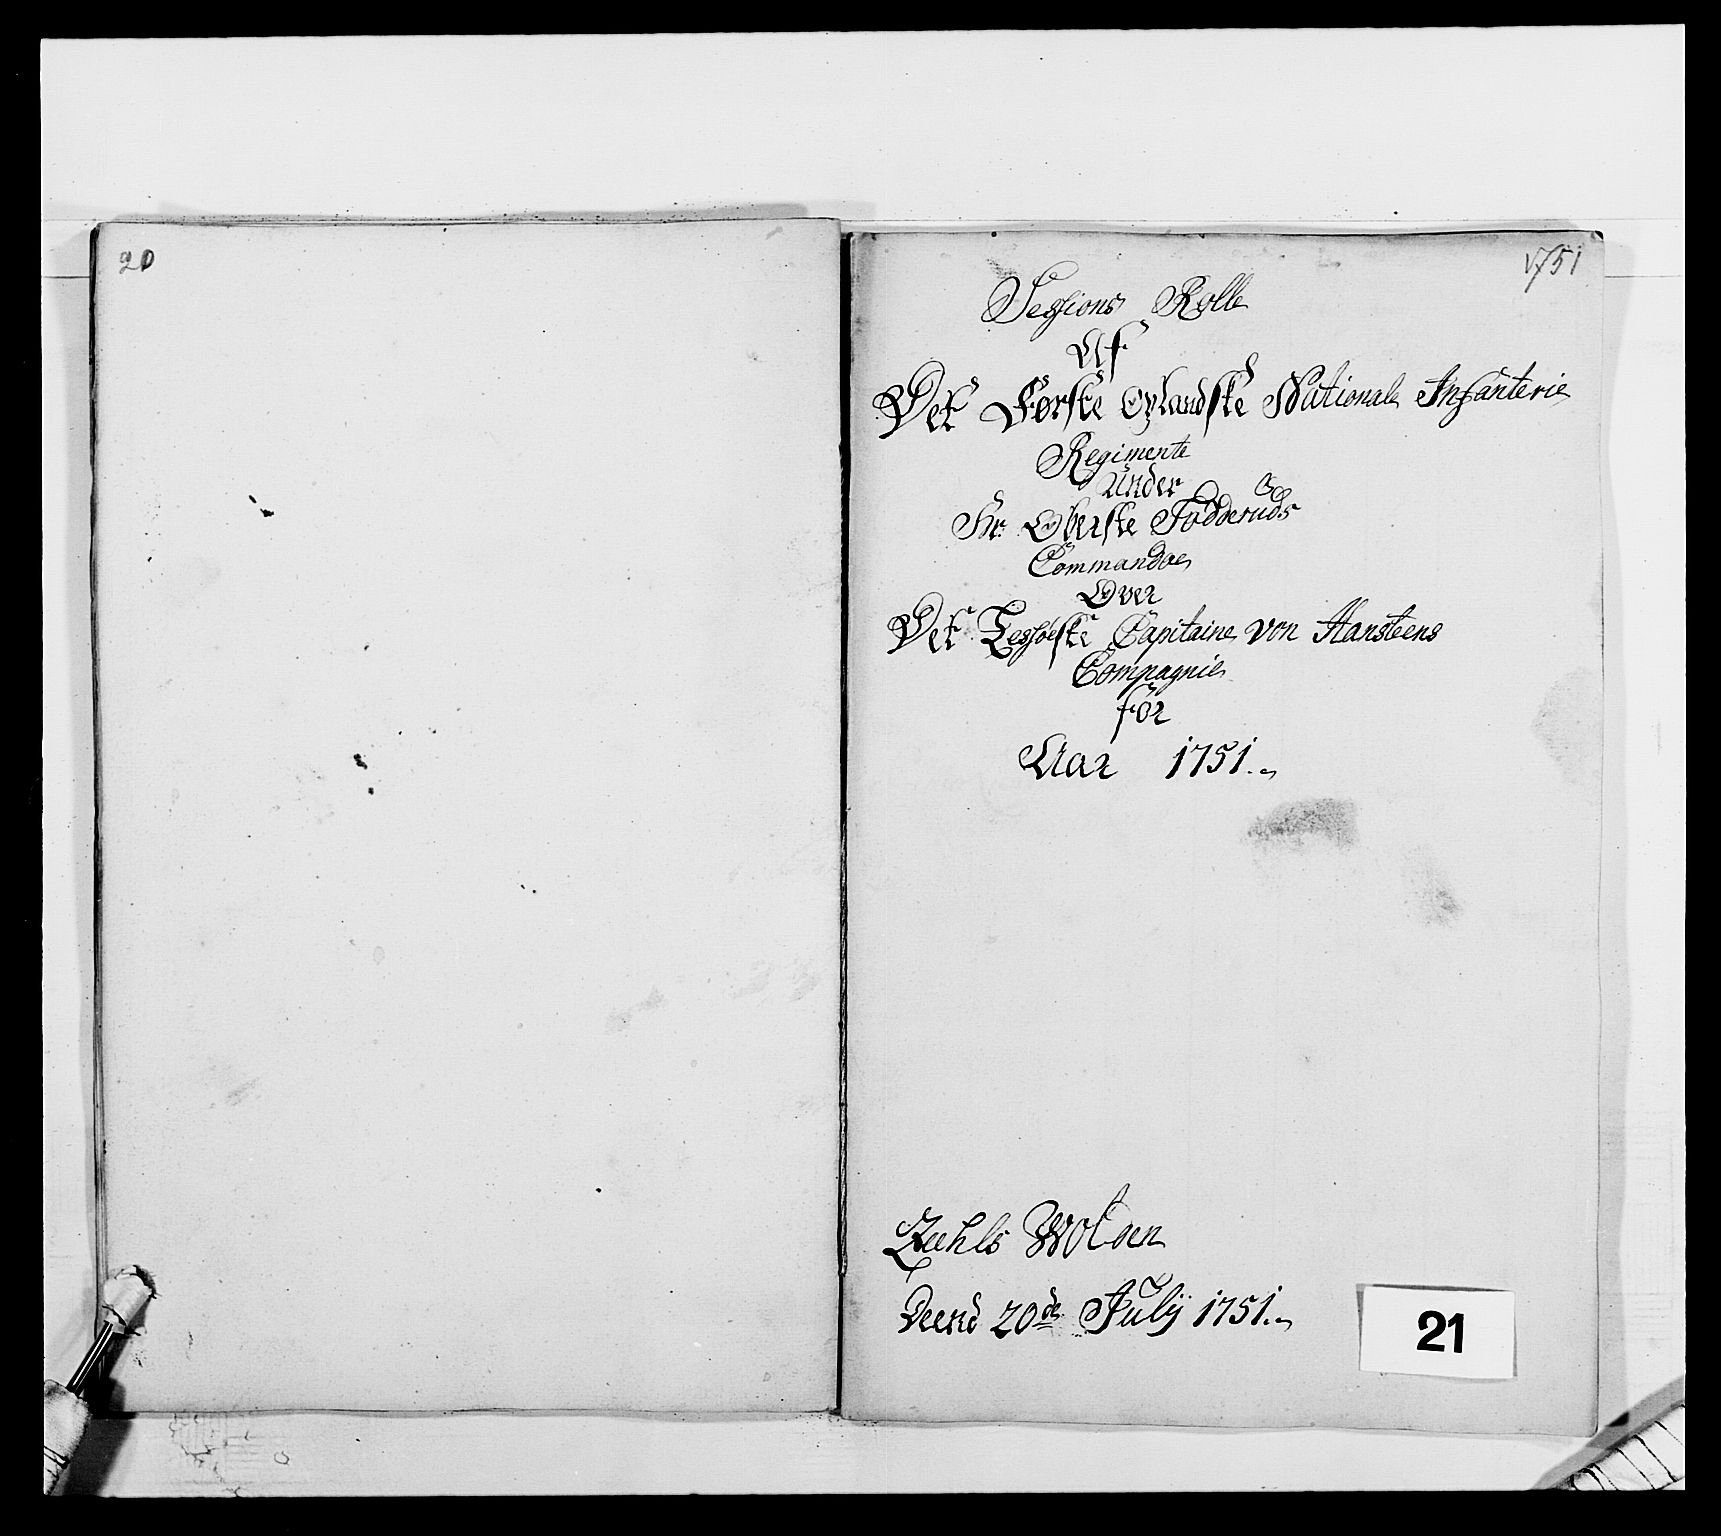 20
1751
Sessions Rolle
Af
Det Første Oplandske Nationale Infanterie
Regimente
Under
Hr: Oberste Fodderuds
Commandoe
Over
Det Lessøeske Capitaine von Hansteens
Compagnie
for
Aar 1751.
Deend 20de July 1751.
21